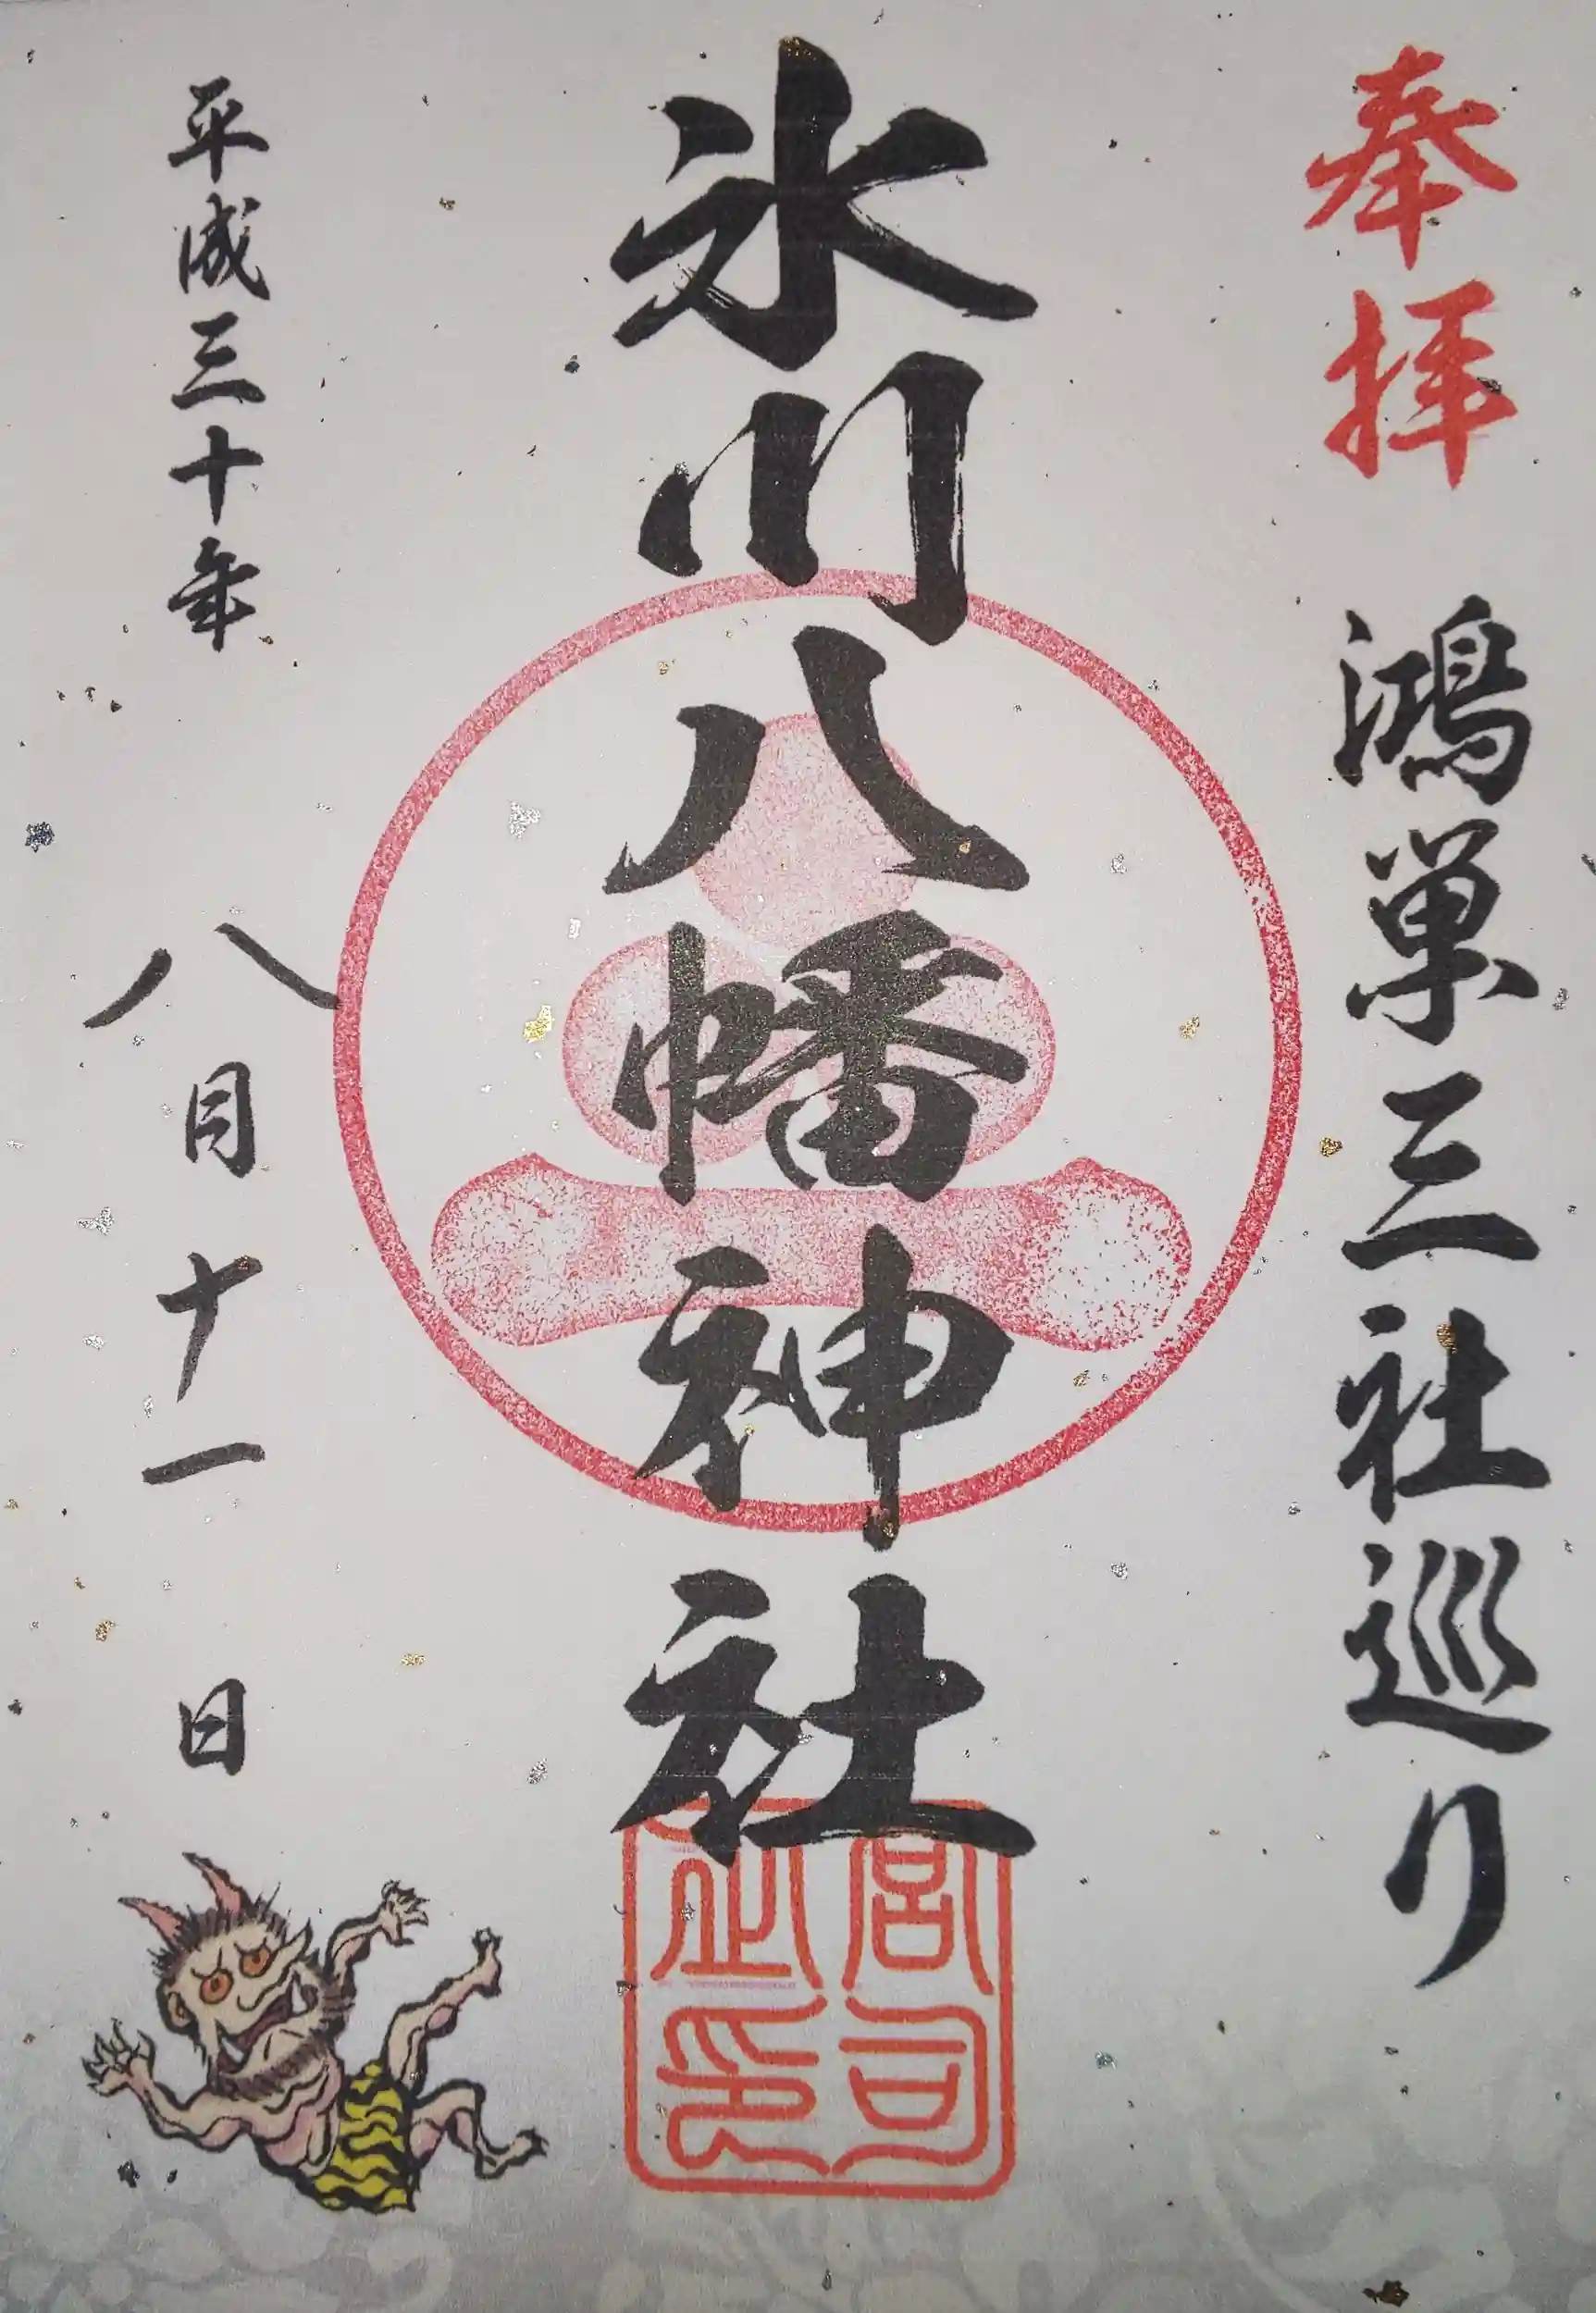 奉拝
鴻巣三社巡り
氷川八幡神社
宮司之印
平成三十年
八月十一日